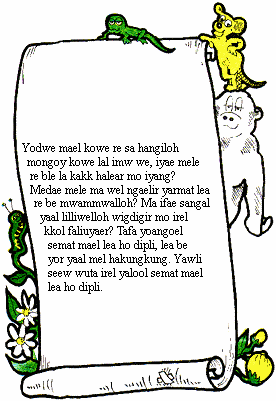 Yodwe mael kowe re sa hangiloh
mongoy kowe lal imw we, iyae mele
re ble la kakk halear mo iyang?
Medae mele ma wel ngaelir yarmat lea
re be mwammwalloh? Ma ifae sangal
yaal lilliwelloh wigdigir mo irel
kkol faliuyaer? Tafa yoangoel
semat mael lea ho dipli, lea be
yor yaal mel hakungkung. Yawli
seew wuta irel yalool semat mael
lea ho dipli.